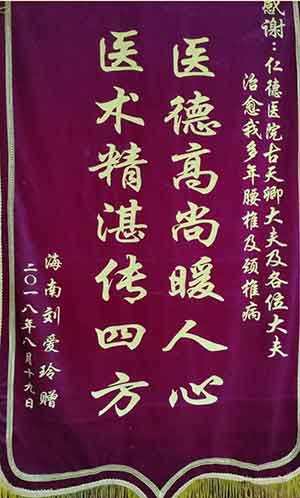 感谢：仁德医院古天卿大夫及各位大夫
治愈我多年腰椎及颈椎病
医德高尚暖人心
医术精湛传四方
海南刘爱玲赠
二〇一八年八月十九日